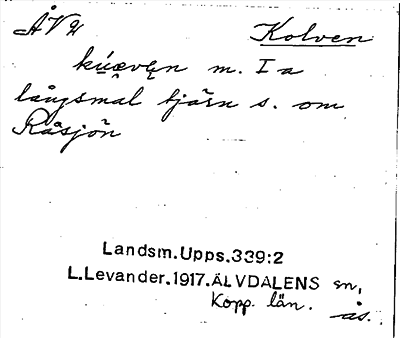 ÅVU Kolven
kúævęn m. I a
långsmal tjärn s. om
Råsjön
Landsm.Upps.339:2
L.Levander.1917.ÄLVDALENS sn,
Kopp. län.
ås.